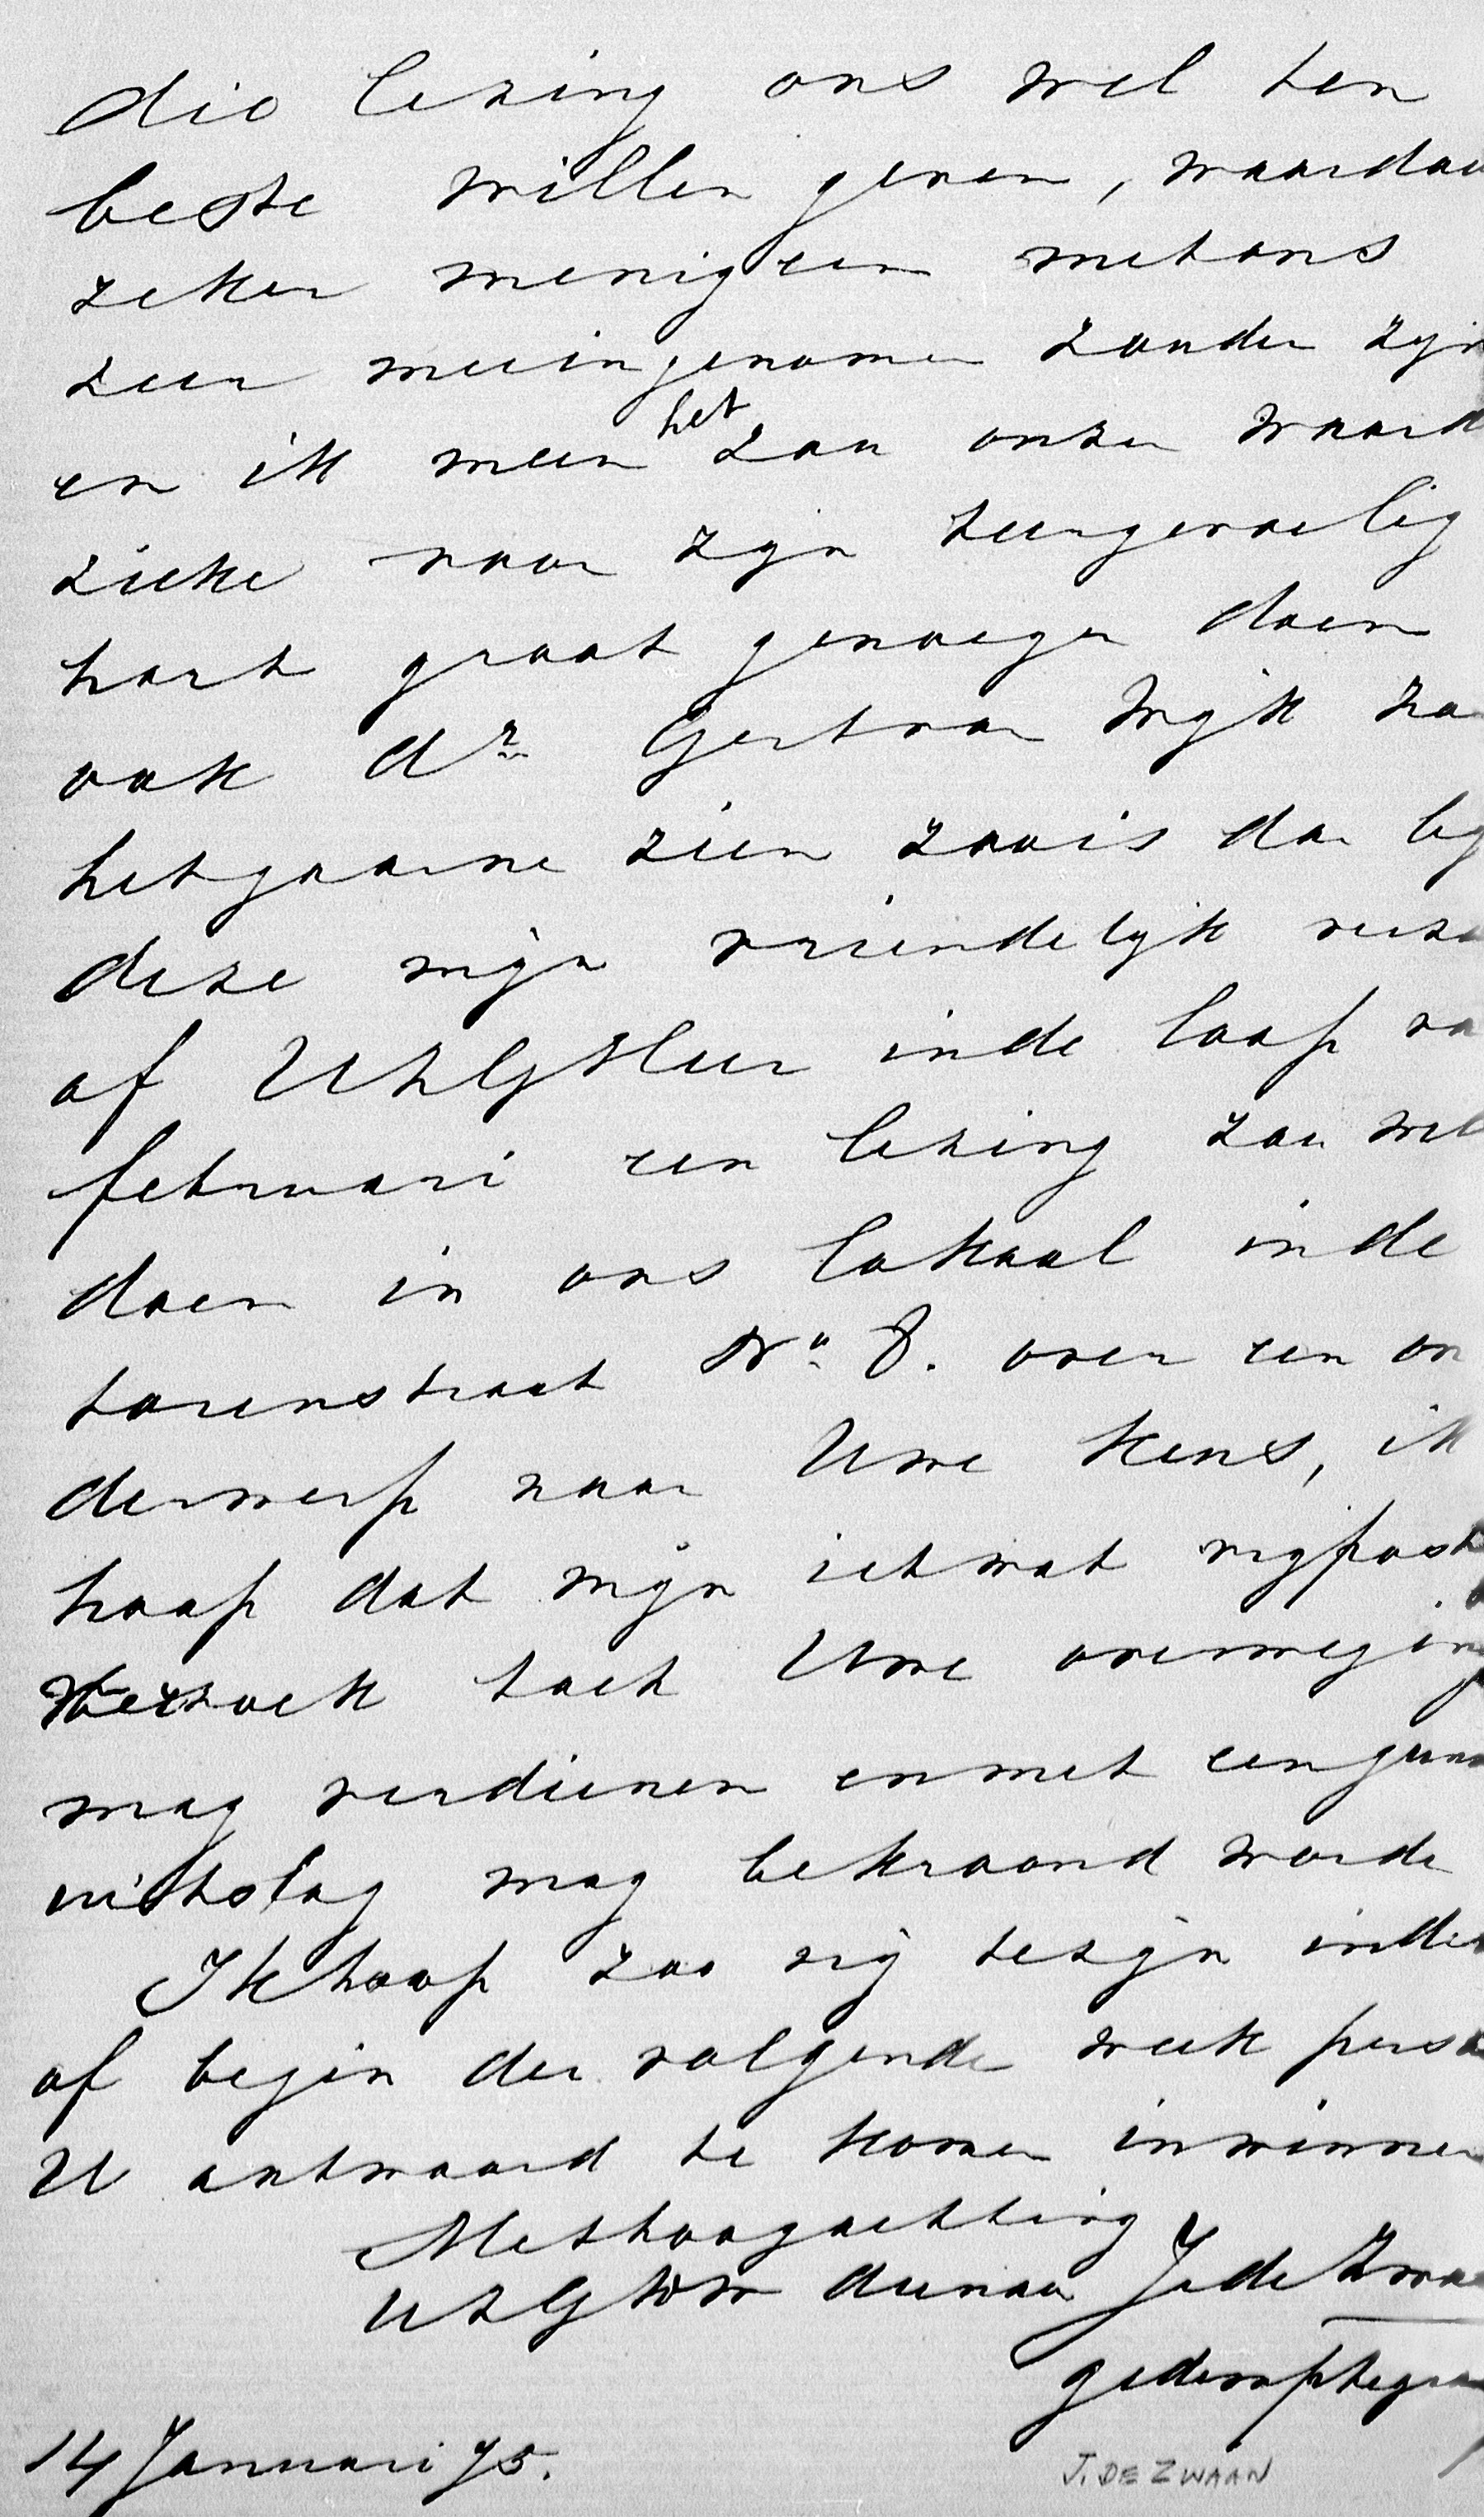 die lezing ons wel ten
beste willen geven, waardoo
zeker menig een met ons
zeer meeingenomen zouden zijn
en ik meen het zou onzen waard
zieke voor zijn teergevoelig
hart groot genoegen doen
ook dr Gerth van Wijk zo
het gaarne zien zoo is dan by
deze mijn vriendelijk verzo
of UZEGHeer in de loop va
februari een lezing zou wil
doen in ons lokaal in de
torenstraat No 8. over een on
derwerp naar Uwe keus, ik
hoop dat mijn ietwat vrijpost
verzoek toch Uwe overweging
mag verdienen en met een guns
uitslag mag bekroond worde
Ik hoop zoo vrij te zijn in de
of begin der volgende week perso
U antwoord te komen inwinnen
Met hoogachting
UZEG WDW dienaar J. de Zwaa
gedempte gra
14 Januari 75.
J. DE ZWAAN